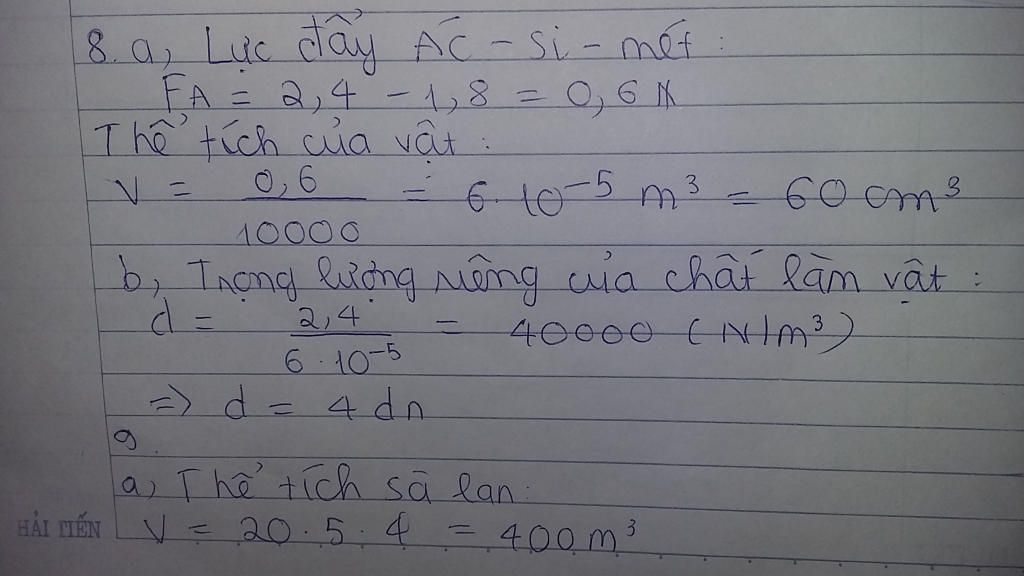 8. a, Lực đẩy Ác - si - mét :
FA = 2,4 - 1,8 = 0,6 N
Thể tích của vật :
V = 0,6 / 10000 = 6 . 10⁻⁵ m³ = 60 cm³
b, Trọng lượng riêng của chất làm vật :
d = 2,4 / 6 . 10⁻⁵ = 40000 ( N/m³ )
=> d = 4 dn
9.
a, Thể tích sà lan :
HẢI TIẾN
V = 20 . 5 . 4 = 400 m³